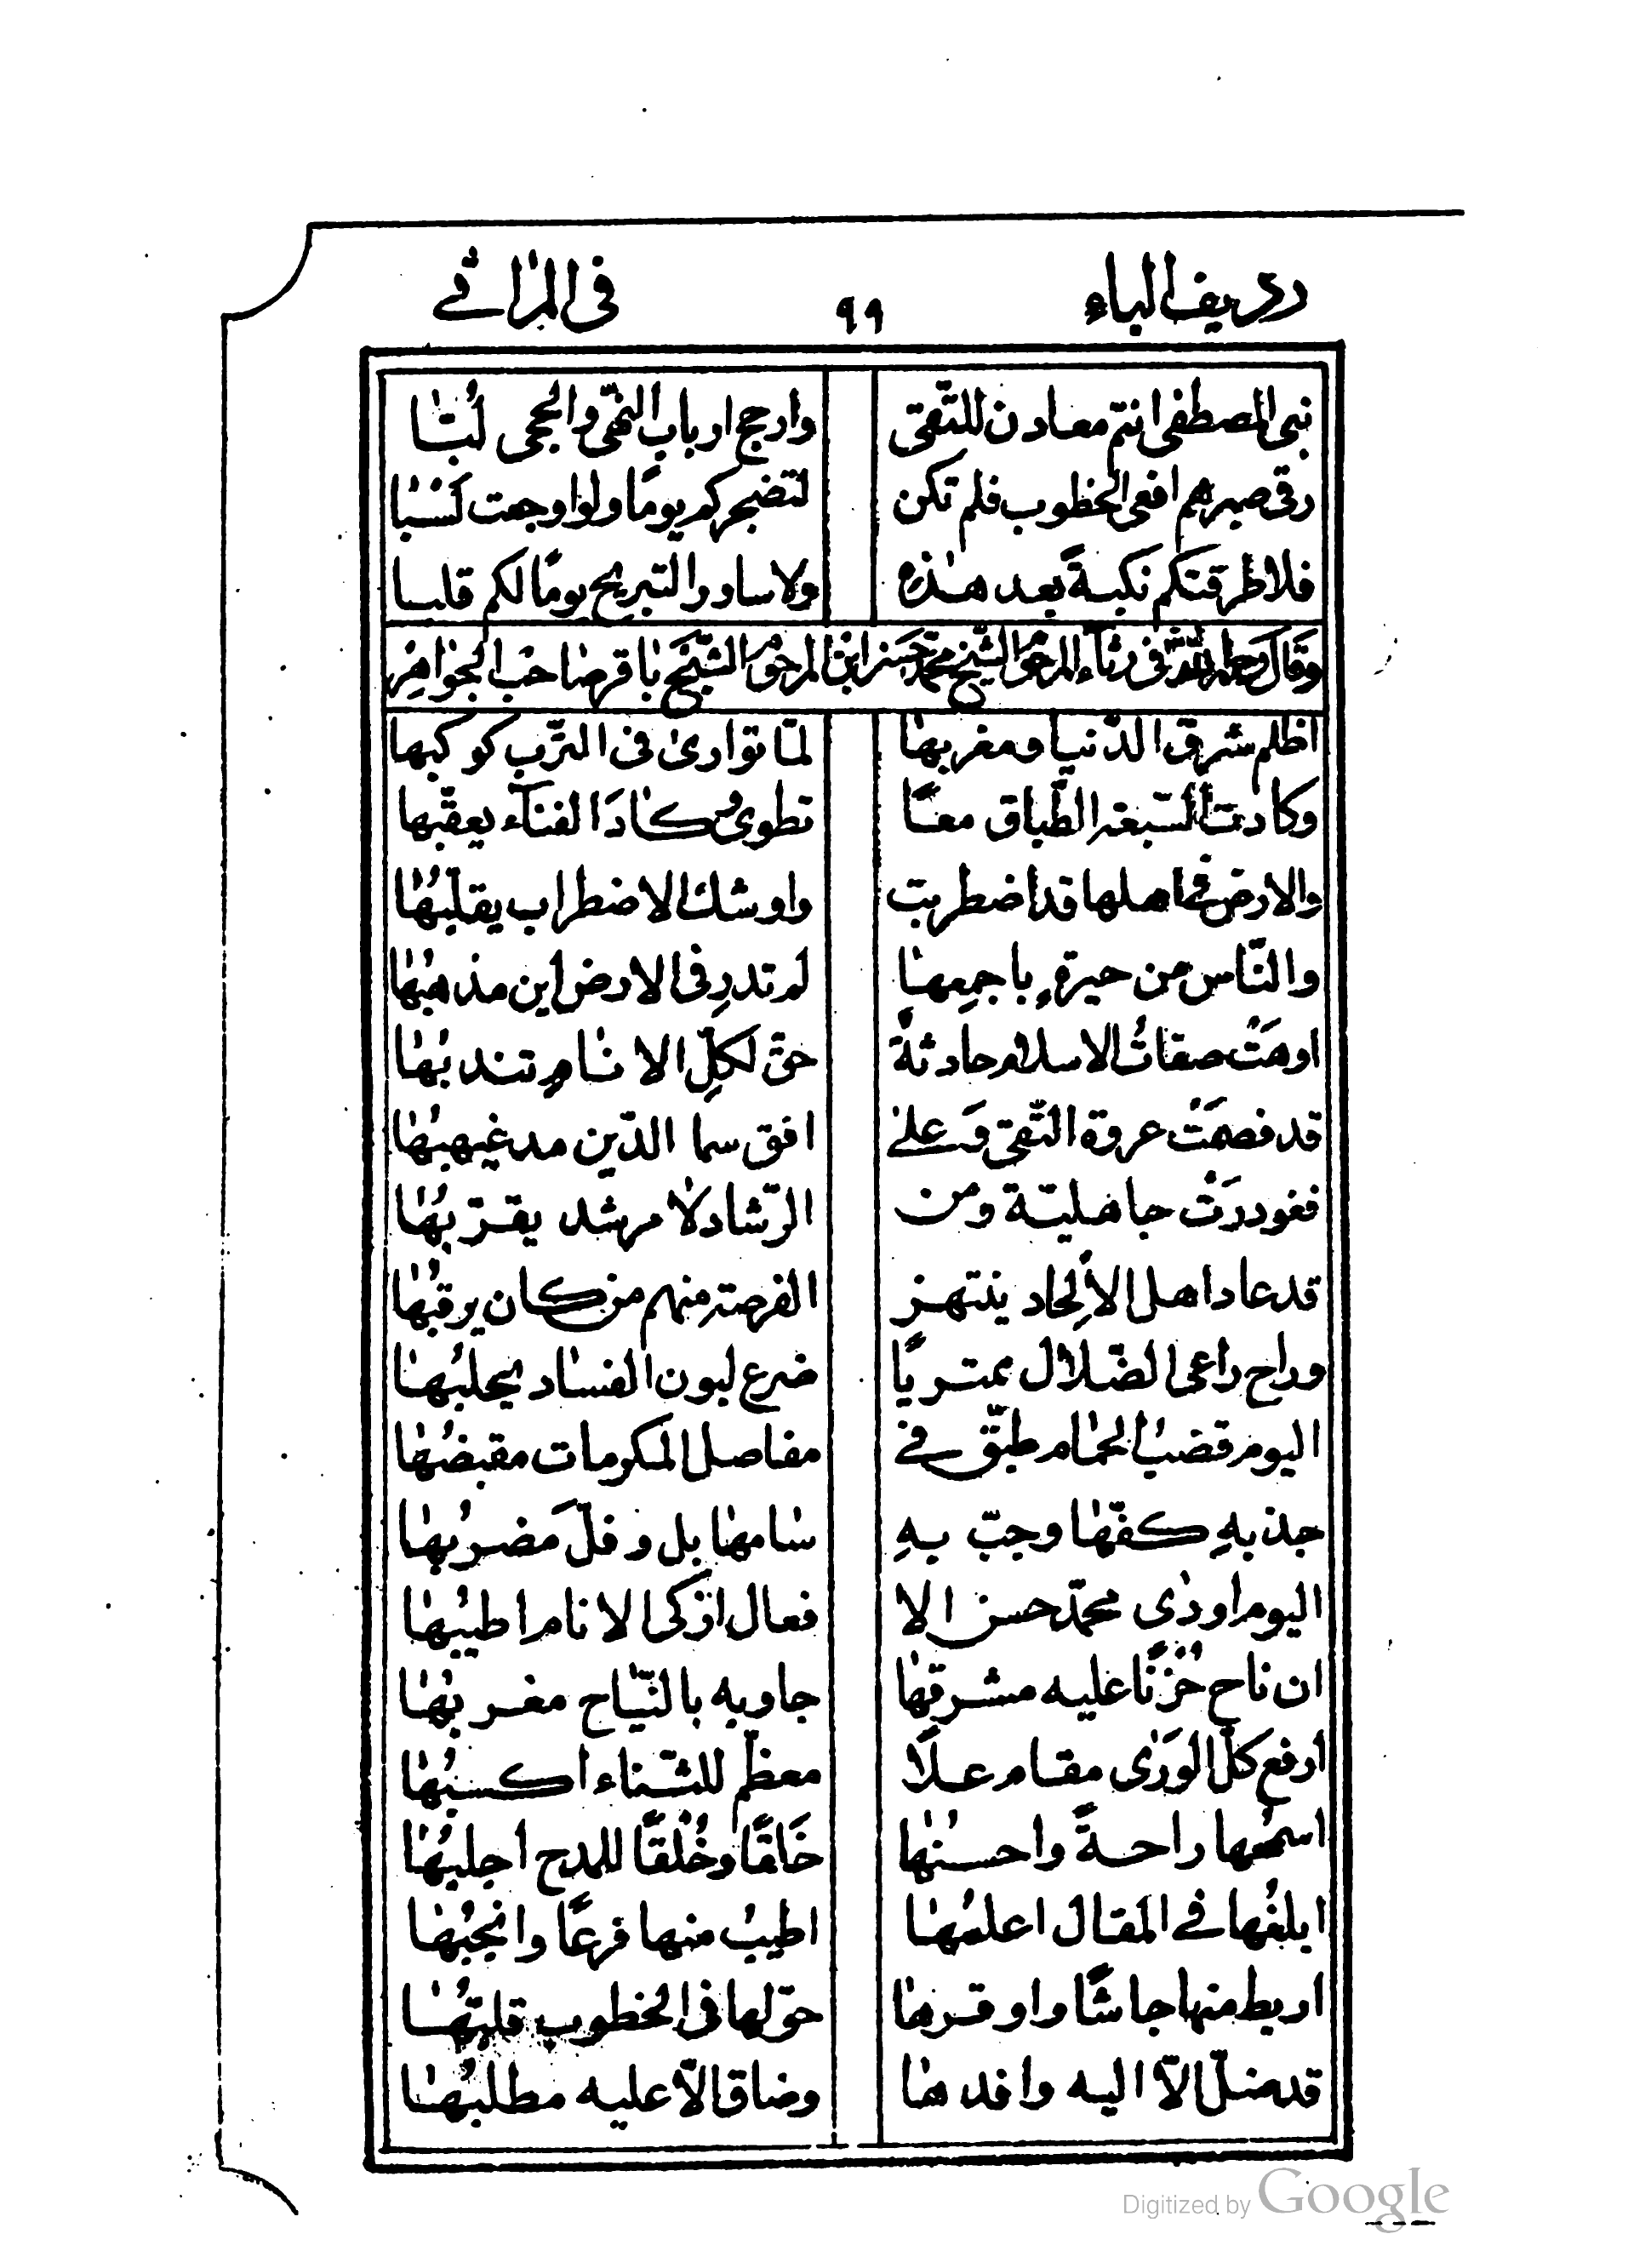 رديف الباء ٩٩ في المراثي
نبي المصطفى انتم معادن للتّقى وارجح ارباب النّهى والحجى لُبّا
رقى صبرهم افعى الخطوب فلم تكن لتضجركم يومًا ولو اوجعت لَسْبا
فلا طرقتكم نكبةً بعد هذه ولا ساور التبريح يومًا لكم قلبا
وقال رحمه الله في رثاء المرحوم الشيخ محمد حسن ابن المرحوم الشّيخ باقر صاحب الجواهر
اظلم شرق الدّنيا ومغربها لمّا توارى في التّرب كوكبها
وكادت السّبعة الطّباق معًا تطوى وكادَ الفناء يعقّبها
والارض في اهلها قد اضطربت واوشك الاضطراب يقلبُها
والنّاس من حيرةٍ باجمِعها لم تدرِ في الارض اين مذهبُها
اوهَتْ صفاتُ الاسلام حادثةٌ حقّ لكلِّ الانامِ تندبُها
قد فصمَتْ عروة التّقى وَعلى افق سما الدّين مد غيهبُها
فغودرَتْ جاهليّة ومن الرّشاد لا مرشد يقرّبُها
قد عاد اهل الألحاد ينتهز الفرصة منهم من كان يرقبُها
وراح راعى الضّلال ممتريًا ضرع لبون الفساد يحلبُها
اليوم قضبُ الحمام طبّق في مفاصل المكرمات مقبضُها
جذ بهِ كفّها وجبّ بهِ سامها بل وفلّ مَضربُها
اليوم اودى محمّد حسن الا فعال ازكى الانام اطيبُها
ان ناح حُزْنًا عليه مشرقها جاوبه بالنّياح مغربُها
ارفع كلّ الورَى مقام علًا معظّم للثّناء اكسبُها
اسمحُها راحةً واحسنُها خَلقًا وخُلْقًا للمدح اجلبُها
ابلغُها في المقال اعلمُها اطيبُ منها فرعًا وانجبُها
اربط منها جاشًا واوقرها حوّلها في الخطوب قلّبُها
قد ضلّ الّا اليه وافدها وضاق الّا عليه مطلبُها
Digitized by Google